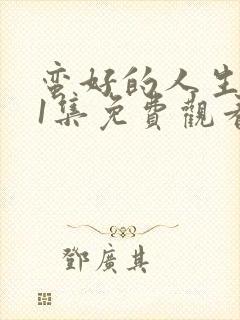 蛮好的人生
1集免費觀看
鄧廣其